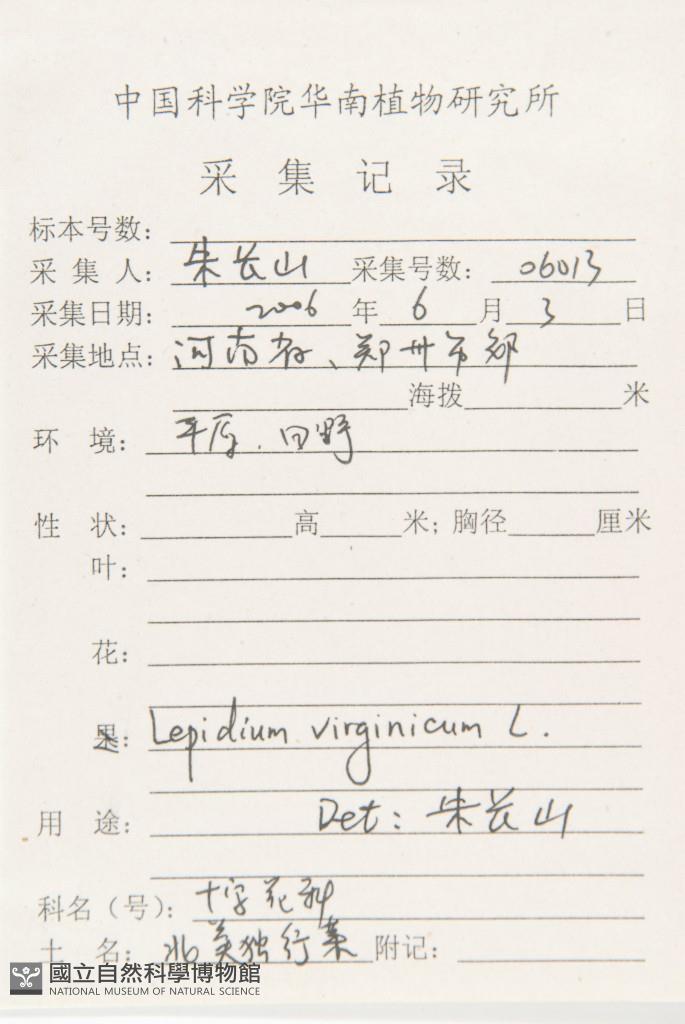 中国科学院华南植物研究所
采集记录
标本号数:
采集人: 朱长山 采集号数: 06013
采集日期: 2006 年 6 月 3 日
采集地点: 河南省、郑州市郊
海拨 米
环境: 平原、田野
性状: 高 米; 胸径 厘米
叶:
花:
果: Lepidium virginicum L.
用途: Det: 朱长山
科名(号): 十字花科
土名: 北美独行菜 附记:
國立自然科學博物館
NATIONAL MUSEUM OF NATURAL SCIENCE